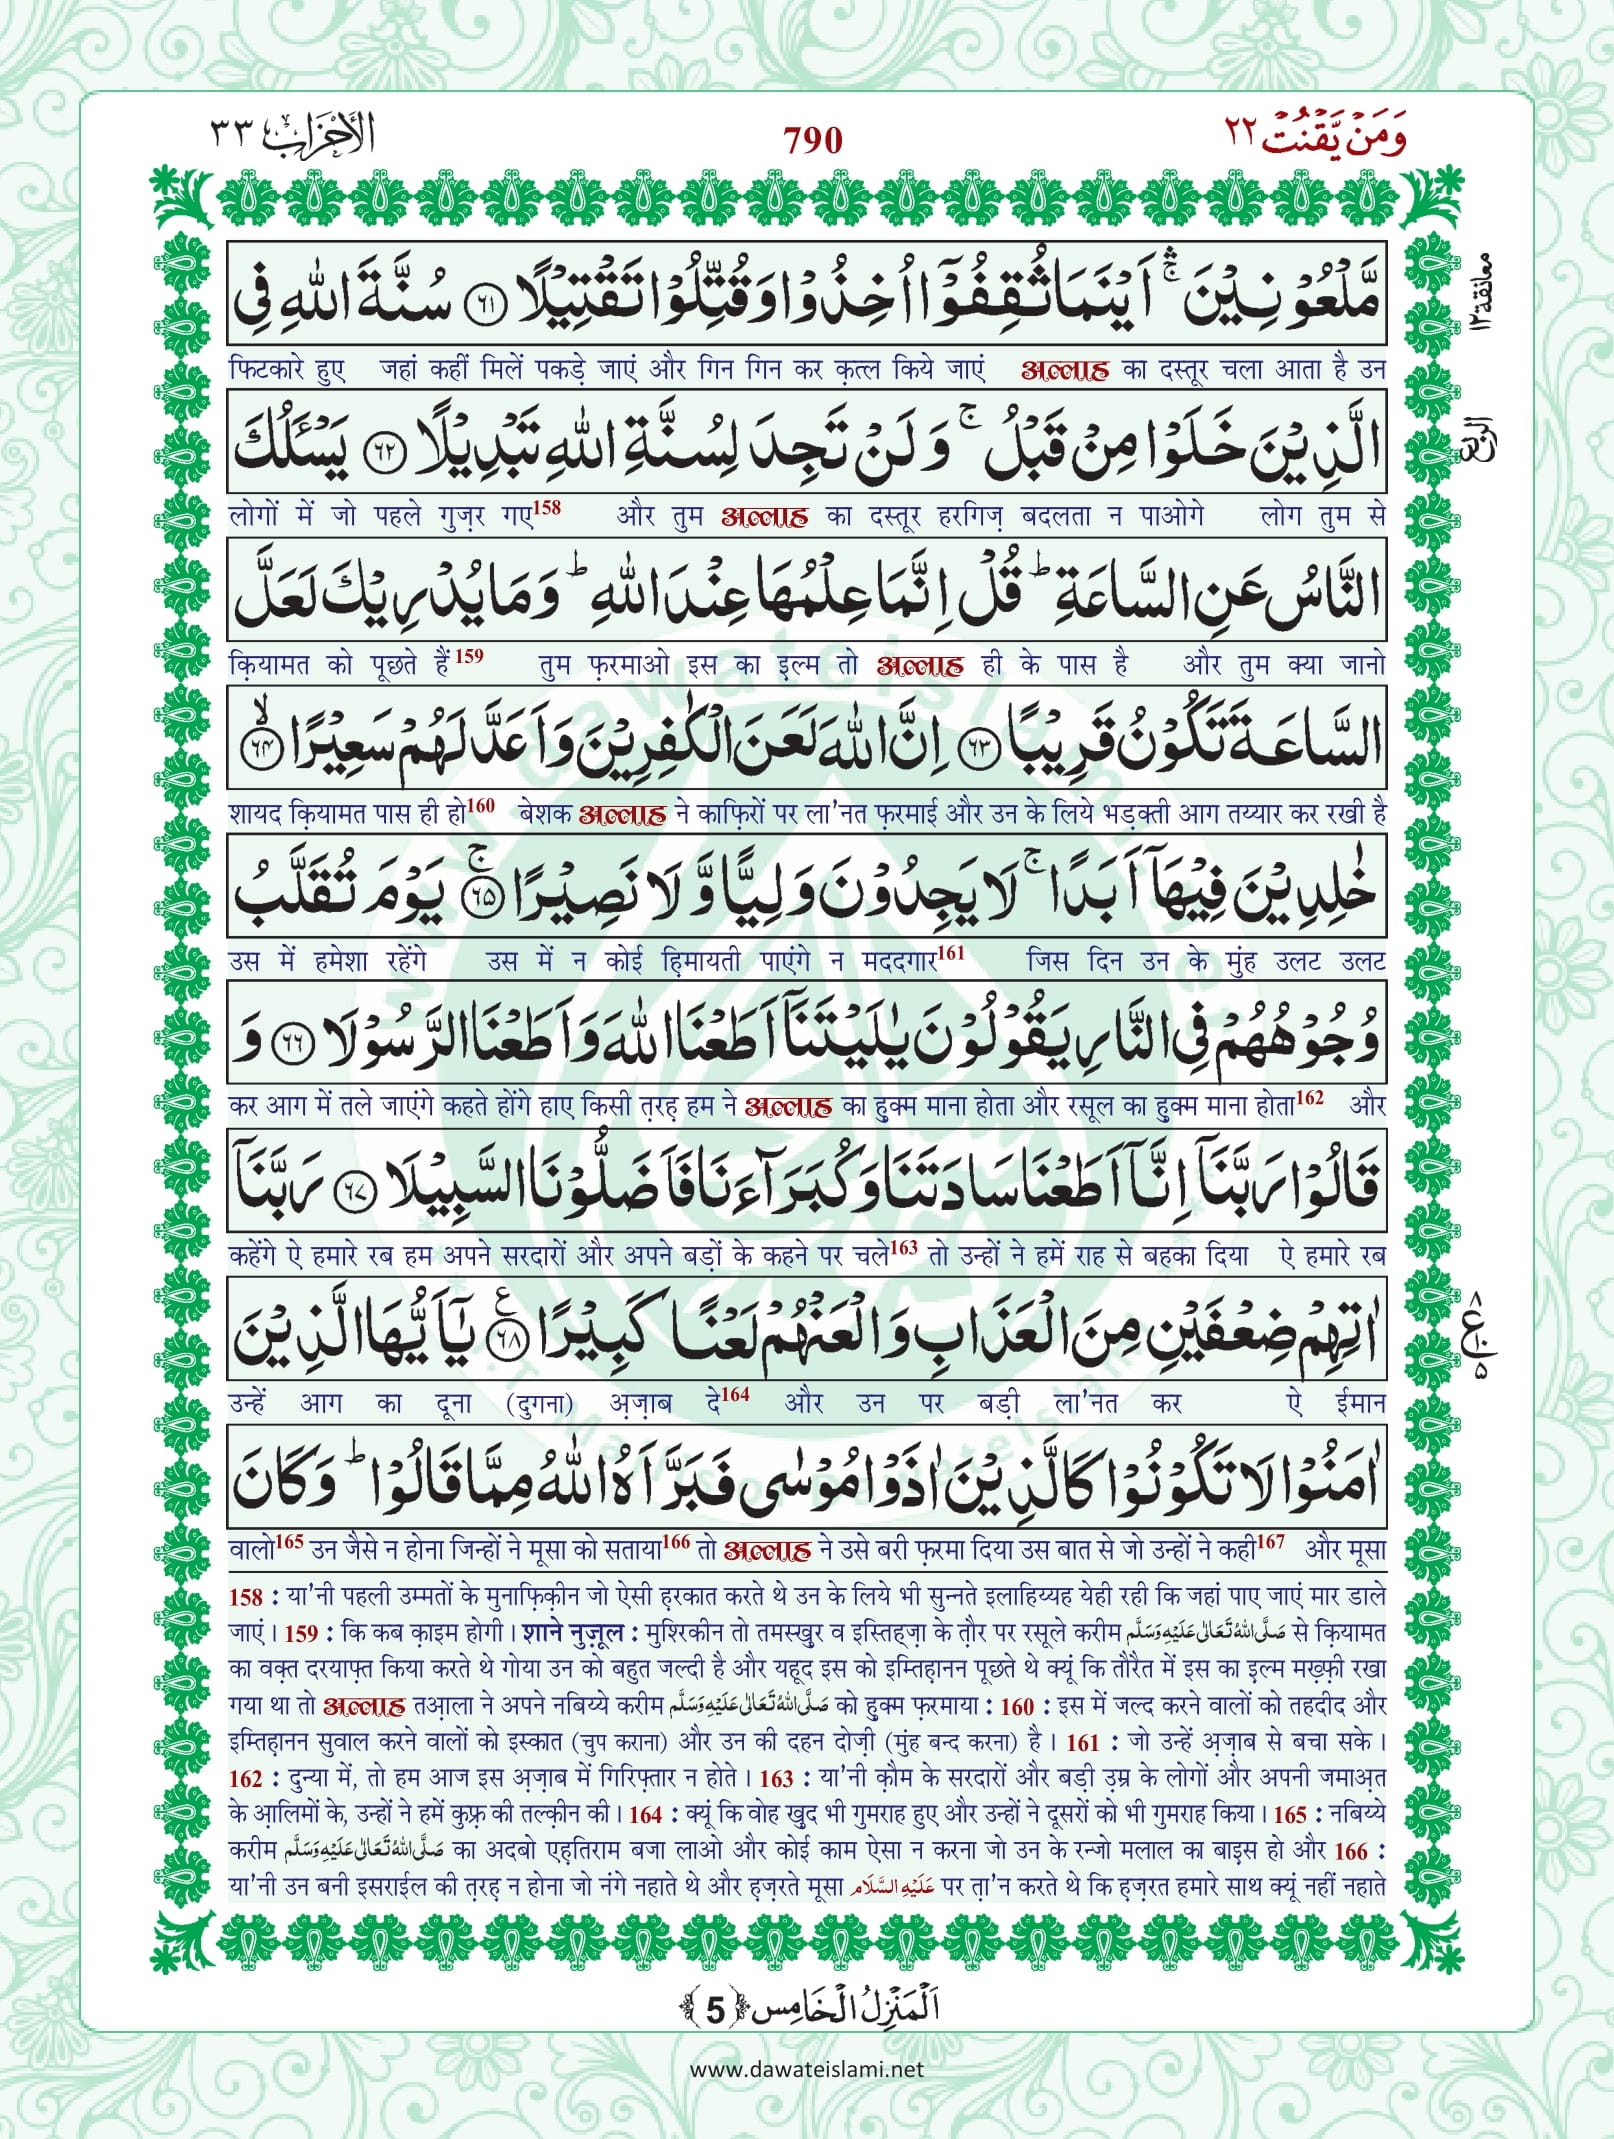 الأحزاب ٣٣
790
وَمَنْ يَّقْنُتْ ٢٢
مَّلْعُوْنِيْنَ ۛۚ اَيْنَمَا ثُقِفُوْۤا اُخِذُوْا وَ قُتِّلُوْا تَقْتِيْلًا ﴿۶۱﴾ سُنَّةَ اللّٰهِ فِی
معانقة ١٢
फिटकारे हुए जहां कहीं मिलें पकड़े जाएं और गिन गिन कर क़त्ल किये जाएं अल्लाह का दस्तूर चला आता है उन
الَّذِيْنَ خَلَوْا مِنْ قَبْلُ ۚ وَ لَنْ تَجِدَ لِسُنَّةِ اللّٰهِ تَبْدِيْلًا ﴿۶۲﴾ يَسْـَٔلُكَ
الربع
लोगों में जो पहले गुज़र गए158 और तुम अल्लाह का दस्तूर हरगिज़ बदलता न पाओगे लोग तुम से
النَّاسُ عَنِ السَّاعَةِ ؕ قُلْ اِنَّمَا عِلْمُهَا عِنْدَ اللّٰهِ ؕ وَ مَا يُدْرِيْكَ لَعَلَّ
क़ियामत को पूछते हैं159 तुम फ़रमाओ इस का इल्म तो अल्लाह ही के पास है और तुम क्या जानो
السَّاعَةَ تَكُوْنُ قَرِيْبًا ﴿۶۳﴾ اِنَّ اللّٰهَ لَعَنَ الْكٰفِرِيْنَ وَ اَعَدَّ لَهُمْ سَعِيْرًا ۙ﴿۶۴﴾
शायद क़ियामत पास ही हो160 बेशक अल्लाह ने काफ़िरों पर ला'नत फ़रमाई और उन के लिये भड़क्ती आग तय्यार कर रखी है
خٰلِدِيْنَ فِيْهَاۤ اَبَدًا ۚ لَا يَجِدُوْنَ وَلِيًّا وَّ لَا نَصِيْرًا ۚ﴿۶۵﴾ يَوْمَ تُقَلَّبُ
उस में हमेशा रहेंगे उस में न कोई ह़िमायती पाएंगे न मददगार161 जिस दिन उन के मुंह उलट उलट
وُجُوْهُهُمْ فِی النَّارِ يَقُوْلُوْنَ يٰلَيْتَنَاۤ اَطَعْنَا اللّٰهَ وَ اَطَعْنَا الرَّسُوْلَا ﴿۶۶﴾ وَ
कर आग में तले जाएंगे कहते होंगे हाए किसी त़रह़ हम ने अल्लाह का हुक्म माना होता और रसूल का हुक्म माना होता162 और
قَالُوْا رَبَّنَاۤ اِنَّاۤ اَطَعْنَا سَادَتَنَا وَ كُبَرَآءَنَا فَاَضَلُّوْنَا السَّبِيْلَا ﴿۶۷﴾ رَبَّنَاۤ
कहेंगे ऐ हमारे रब हम अपने सरदारों और अपने बड़ों के कहने पर चले163 तो उन्हों ने हमें राह से बहका दिया ऐ हमारे रब
اٰتِهِمْ ضِعْفَيْنِ مِنَ الْعَذَابِ وَ الْعَنْهُمْ لَعْنًا كَبِيْرًا ﴿۶۸﴾ ع يٰۤاَيُّهَا الَّذِيْنَ
उन्हें आग का दूना (दुगना) अ़ज़ाब दे164 और उन पर बड़ी ला'नत कर ऐ ईमान
اٰمَنُوْا لَا تَكُوْنُوْا كَالَّذِيْنَ اٰذَوْا مُوْسٰی فَبَرَّاَهُ اللّٰهُ مِمَّا قَالُوْا ؕ وَ كَانَ
वालो165 उन जैसे न होना जिन्हों ने मूसा को सताया166 तो अल्लाह ने उसे बरी फ़रमा दिया उस बात से जो उन्हों ने कही167 और मूसा
158 : या'नी पहली उम्मतों के मुनाफ़िक़ीन जो ऐसी ह़रकात करते थे उन के लिये भी सुन्नते इलाहिय्यह येही रही कि जहां पाए जाएं मार डाले
जाएं। 159 : कि कब क़ाइम होगी। शाने नुज़ूल : मुश्रिकीन तो तमस्ख़ुर व इस्तिह्ज़ा के त़ौर पर रसूले करीम صَلَّى اللّٰهُ تَعَالٰى عَلَيْهِ وَسَلَّم से क़ियामत
का वक़्त दरयाफ़्त किया करते थे गोया उन को बहुत जल्दी है और यहूद इस को इम्तिह़ानन पूछते थे क्यूं कि तौरैत में इस का इल्म मख़्फ़ी रखा
गया था तो अल्लाह तआ़ला ने अपने नबिय्ये करीम صَلَّى اللّٰهُ تَعَالٰى عَلَيْهِ وَسَلَّم को हुक्म फ़रमाया : 160 : इस में जल्द करने वालों को तहदीद और
इम्तिह़ानन सुवाल करने वालों को इस्कात (चुप कराना) और उन की दहन दोज़ी (मुंह बन्द करना) है। 161 : जो उन्हें अ़ज़ाब से बचा सके।
162 : दुन्या में, तो हम आज इस अ़ज़ाब में गिरिफ़्तार न होते। 163 : या'नी क़ौम के सरदारों और बड़ी उ़म्र के लोगों और अपनी जमाअ़त
के आ़लिमों के, उन्हों ने हमें कुफ़्र की तल्क़ीन की। 164 : क्यूं कि वोह ख़ुद भी गुमराह हुए और उन्हों ने दूसरों को भी गुमराह किया। 165 : नबिय्ये
करीम صَلَّى اللّٰهُ تَعَالٰى عَلَيْهِ وَسَلَّم का अदबो एह़तिराम बजा लाओ और कोई काम ऐसा न करना जो उन के रन्जो मलाल का बाइ़स हो और 166 :
या'नी उन बनी इसराईल की त़रह़ न होना जो नंगे नहाते थे और ह़ज़रते मूसा عَلَيْهِ السَّلَام पर त़ा'न करते थे कि ह़ज़रत हमारे साथ क्यूं नहीं नहाते
اَلْمَنْزِلُ الْخَامِس ﴿5﴾
www.dawateislami.net